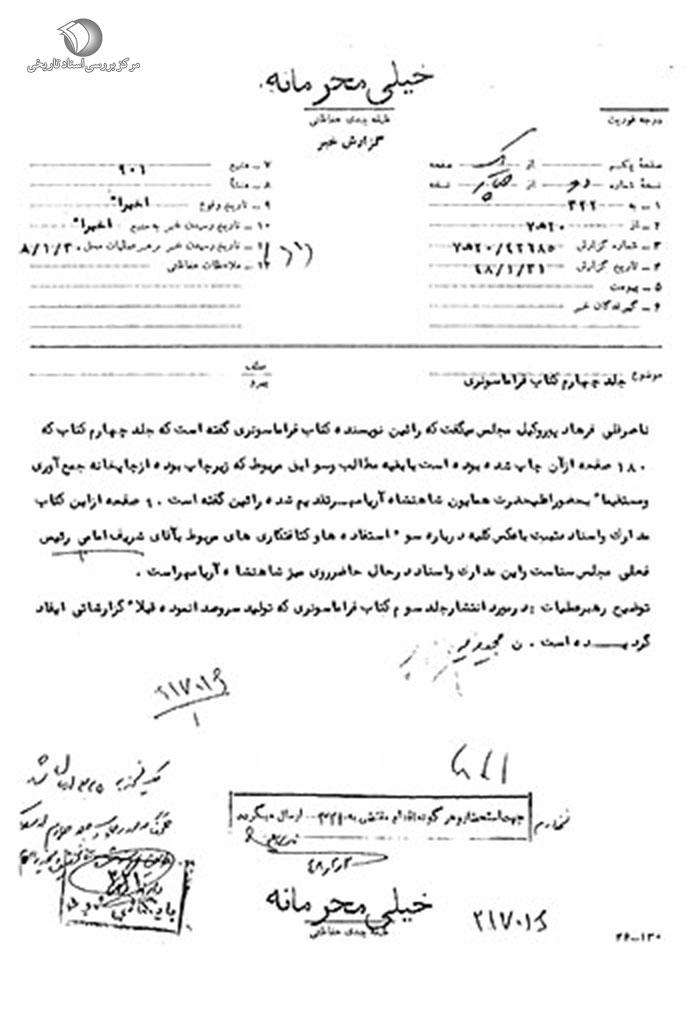 مرکز بررسی اسناد تاریخی
خیلی محرمانه
طبقه بندی حفاظتی
گزارش خبر
درجه فوریت
صفحهٔ یکم از یک صفحه
نسخهٔ شماره دو از نسخه
۱ – به ۳۲۲
۲ – از ۷ﻫ۲۰
۳ – شماره گزارش ۷ﻫ۲۰/۴۲۶۸۵
۴ – تاریخ گزارش ۴۸/۱/۳۱
۵ – پیوست
۶ – گیرندگان خبر
۷ – منبع ۹۰۶
۸ – منشأ
۹ – تاریخ وقوع اخیرا"
۱۰ – تاریخ رسیدن خبر به منبع اخیرا"
۱۱ – تاریخ رسیدن خبر به رهبر عملیات محل ۸/۱/۳۰
۱۲ – ملاحظات حفاظتی
موضوع جلد چهارم کتاب فراماسونری
عطف
پیرو
ناصرقلی فرهاد پوروکیل مجلس میگفت که رائین نویسنده کتاب فراماسونری گفته است که جلد چهارم کتاب که
۱۸۰ صفحه ازآن چاپ شده بوده است بابقیه مطالب وسوابق مربوط که زیرچاپ بوده ازچاپخانه جمع آوری
ومستقیما" بحضوراعلیحضرت همایون شاهنشاه آریامهر تقدیم شده رائین گفته است ۶۰ صفحه ازاین کتاب
مدارک واسناد مثبت باعکس کلیه درباره سوء استفاده ها و کثافتکاری های مربوط بآقای شریف امامی رئیس
فعلی مجلس سناست واین مدارک واسناد درحال حاضرروی میز شاهنشاه آریامهراست .
توضیح رهبرعملیات : درمورد انتشارجلد سوم کتاب فراماسونری که تولید سروصدا نموده قبلا" گزارشاتی ایفاد
گردیده است . ن
۲۱۷۰۱۶
۱
جهت استحضار و هر گونه اقدام مقتضی به ارسال میگردد
خیلی محرمانه
طبقه بندی حفاظتی
بایگانی شود
۲۱۷۰۱۶
۲۶–۱۳۰